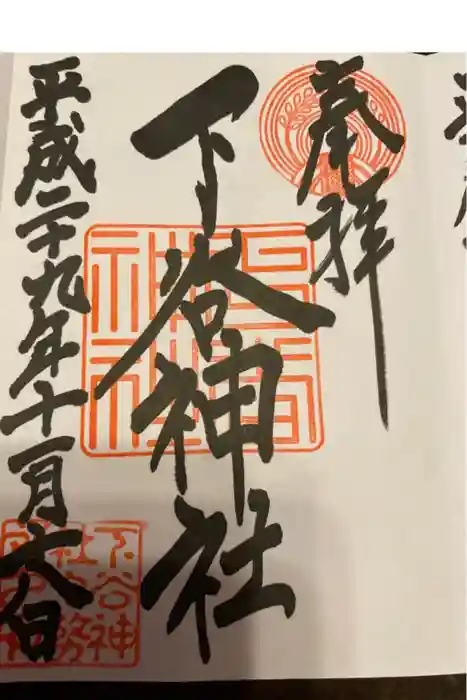 奉拝
下谷神社
平成二十九年十一月六日
下谷神
社